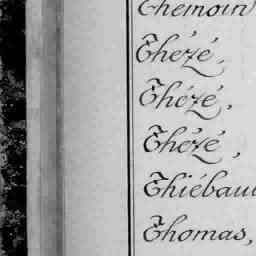 Themoin
Thézé,
Thézé,
Thézé,
Thiébau
Thomas,